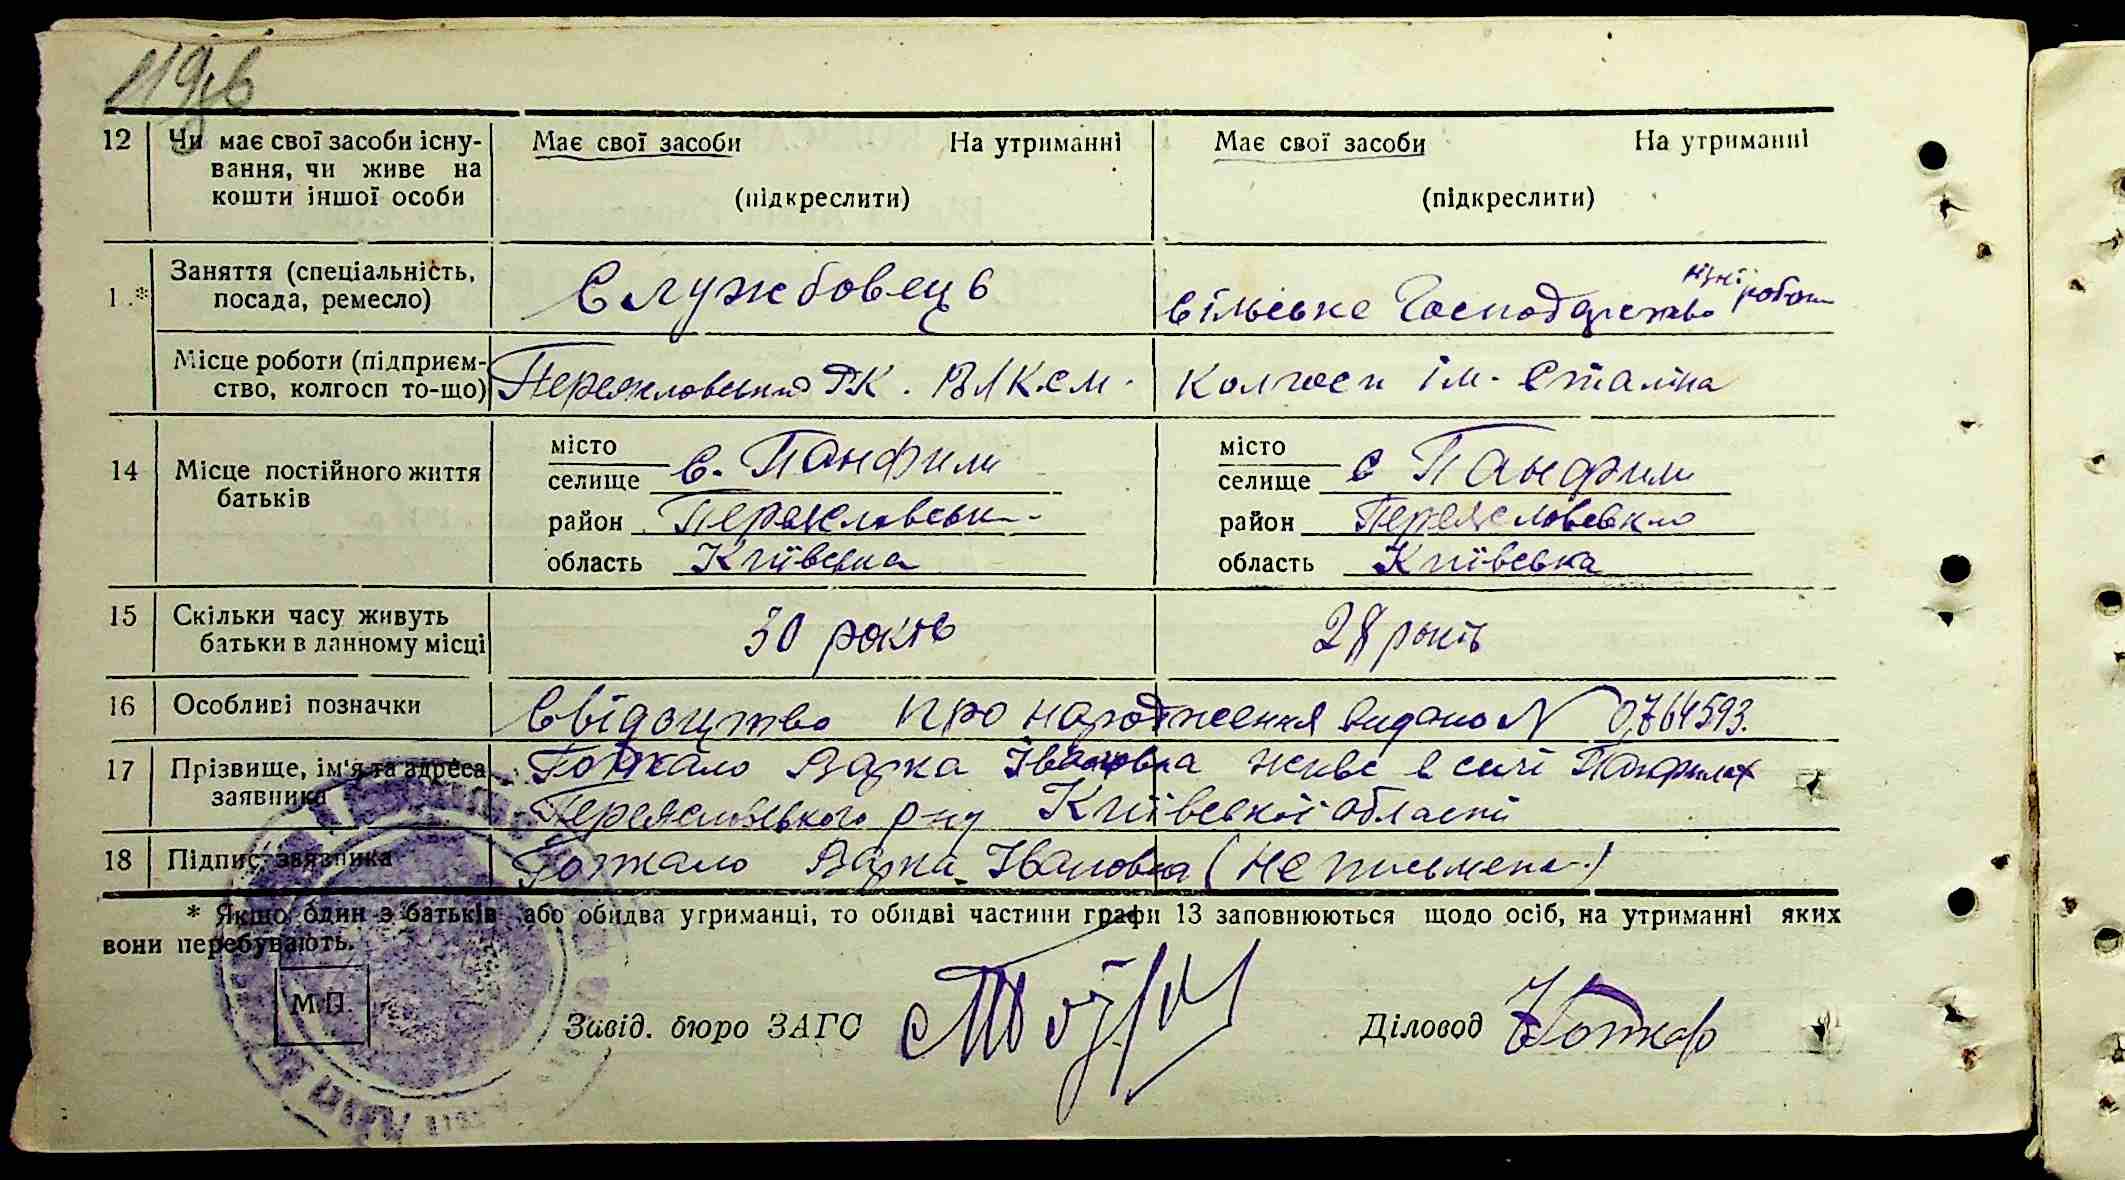 12 Чи має свої засоби існу-
вання, чи живе на
кошти іншої особи
Має свої засоби На утриманні
(підкреслити)
Має свої засоби На утриманні
(підкреслити)
1 .* Заняття (спеціальність,
посада, ремесло)
Службовець
Сільське Господарство різні роботи
Місце роботи (підприєм-
ство, колгосп то-що)
Переяславський РК. ВЛКСМ.
Колгосп ім. Сталіна
14 Місце постійного життя
батьків
місто
селище с. Панфили
район Переяславськ
область Київська
місто
селище с Панфили
район Переяславсько
область Київська
15 Скільки часу живуть
батьки в данному місці
30 років
28 років
16 Особливі позначки
Свідоцтво про народження видано N 0764593.
17 Прізвище, ім'я та адреса
заявника
Варка Івановна живе в селі Панфилах
Переяславського р-ну Київської області
18 Підпис заявника
Варка Івановна (не письмена)
* Якщо один з батьків або обидва утриманці, то обидві частини графи 13 заповнюються щодо осіб, на утриманні яких
вони перебувають.
М.П.
Завід. бюро ЗАГС
Діловод